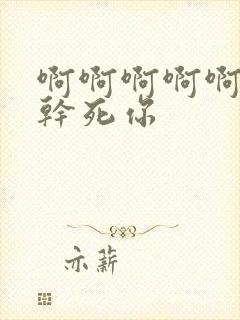 啊啊啊啊啊
幹死你
亦薪